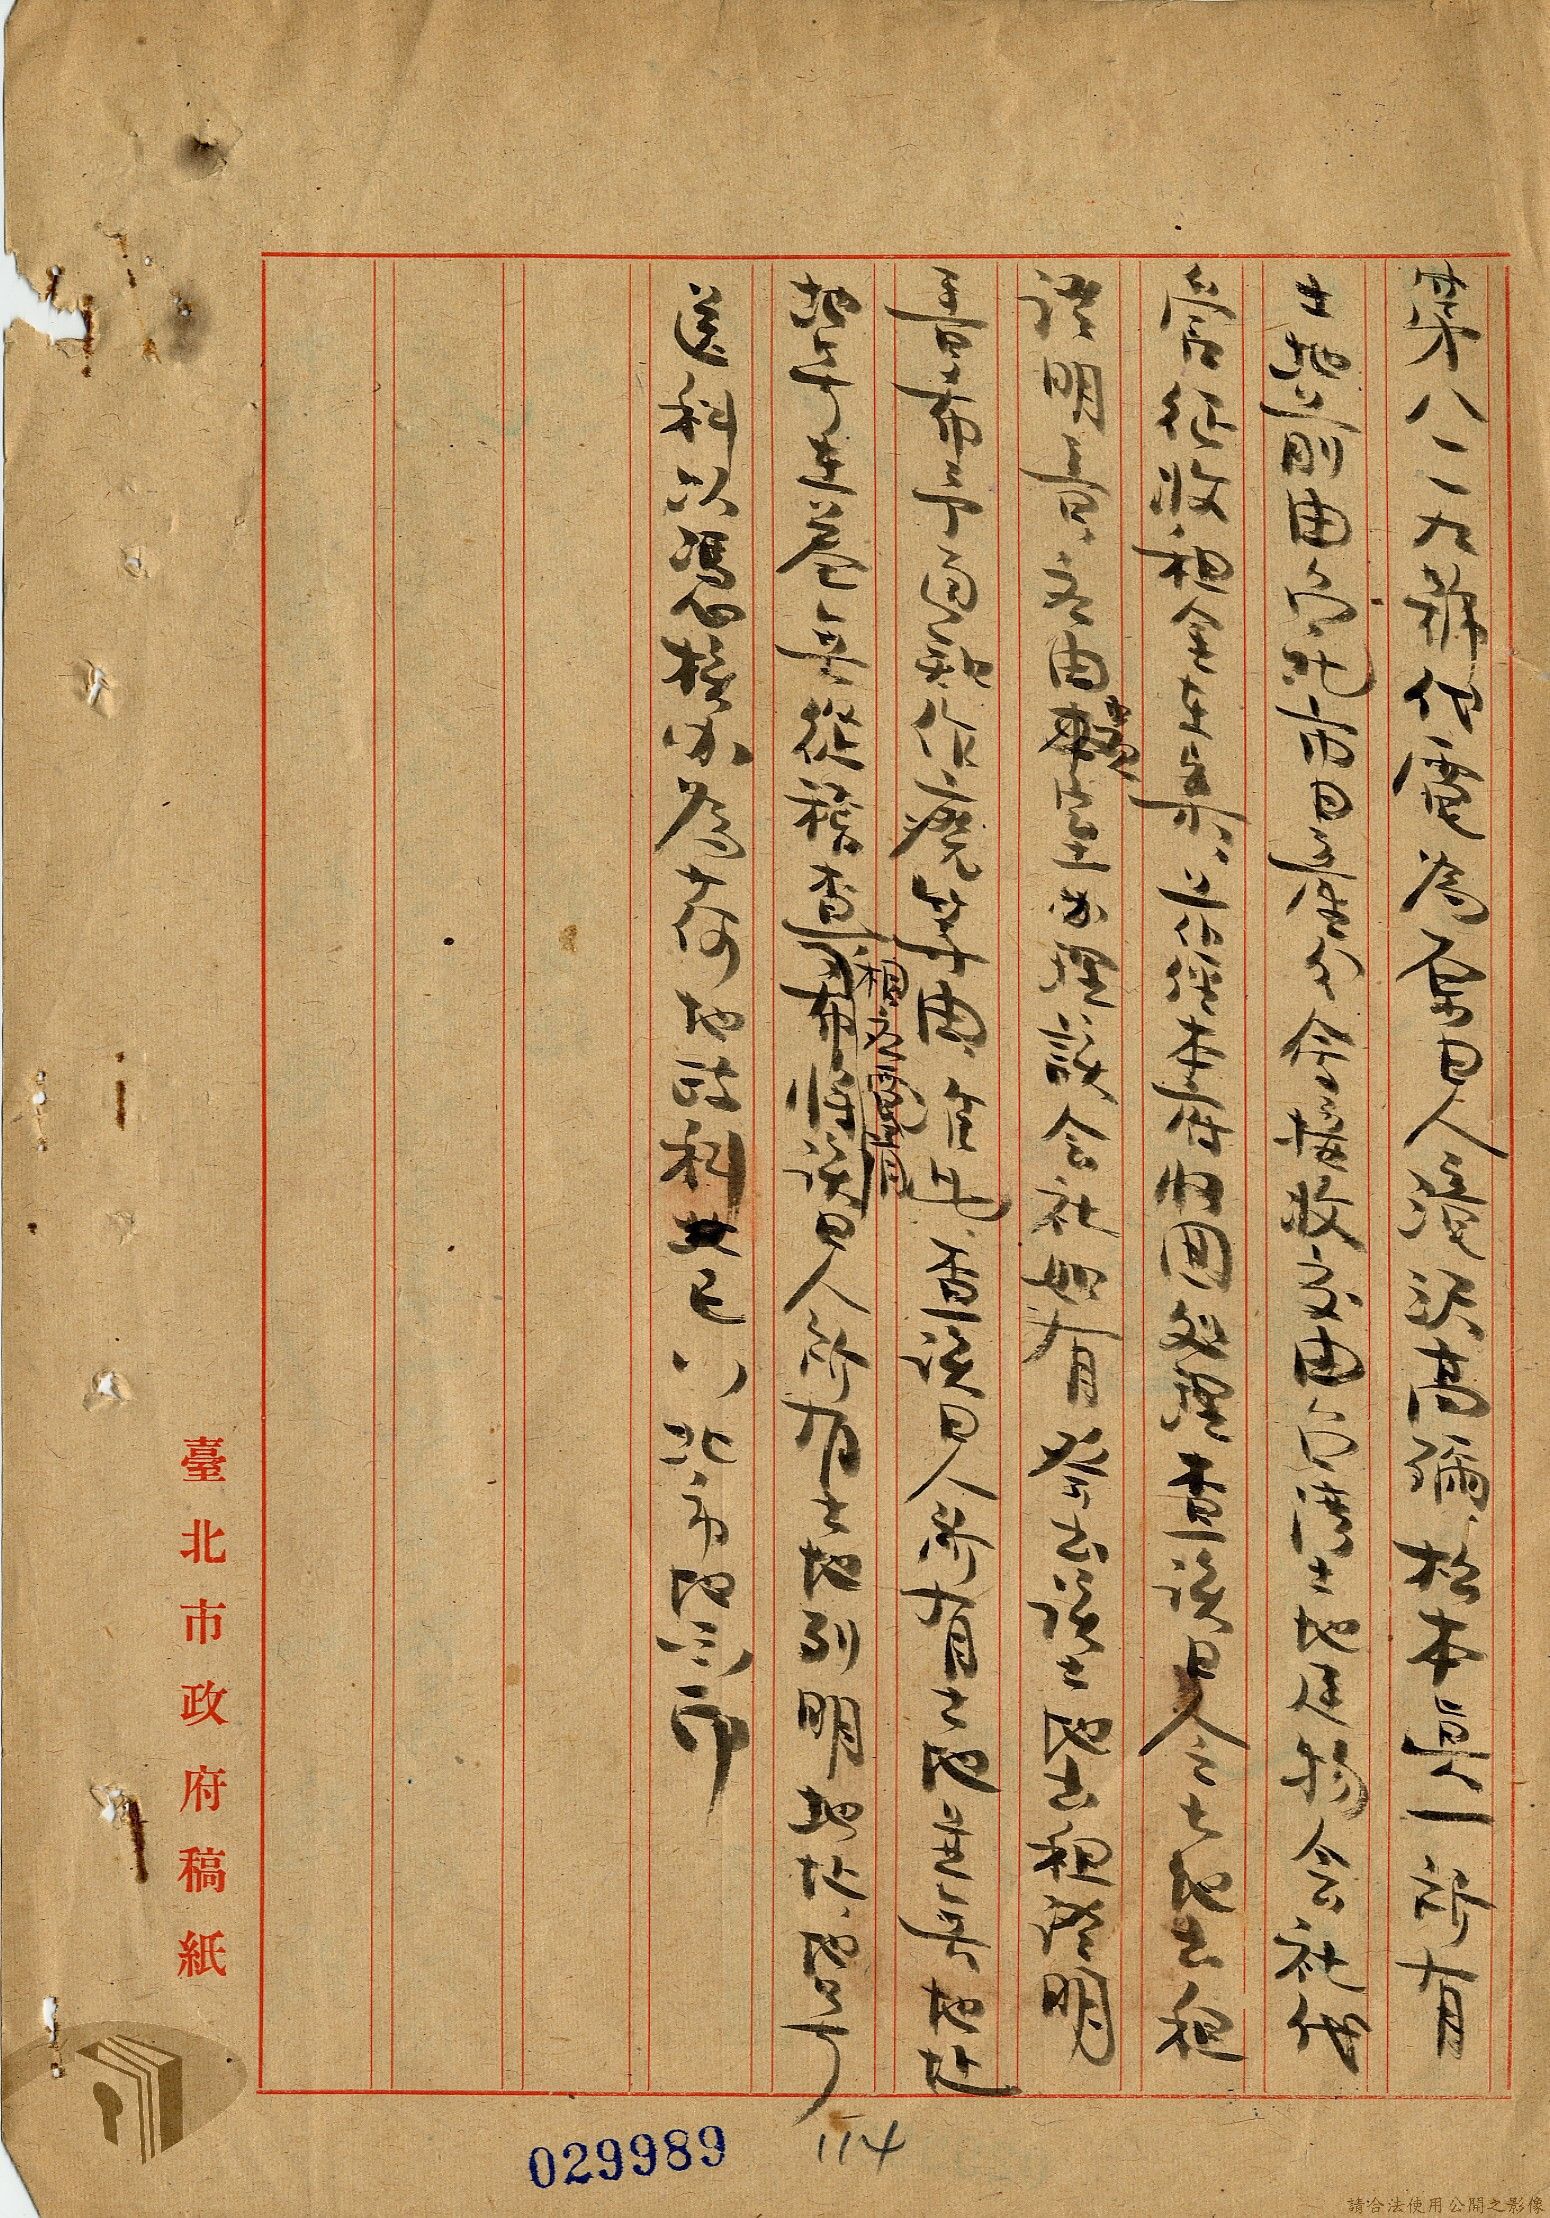 第八一一九號代電為奉日人瀧沢高彌、松本眞一所有
土地前由台北市日產分會接收交由台灣土地建物会社代
管征收租金在案、並介經本府收回処理查該日人之土地出租
證明書、應由本室办理該会社如有發出該土地出租證明
書希予通知作廢等由、准此、查該日人所有土地並無地址
地號在卷無從稽查
相應電請
布將該日人所有土地列明地址、地號
送科以憑核办為荷地政科
北市地
印
臺北市政府稿紙
029989
114
請合法使用公開之影像